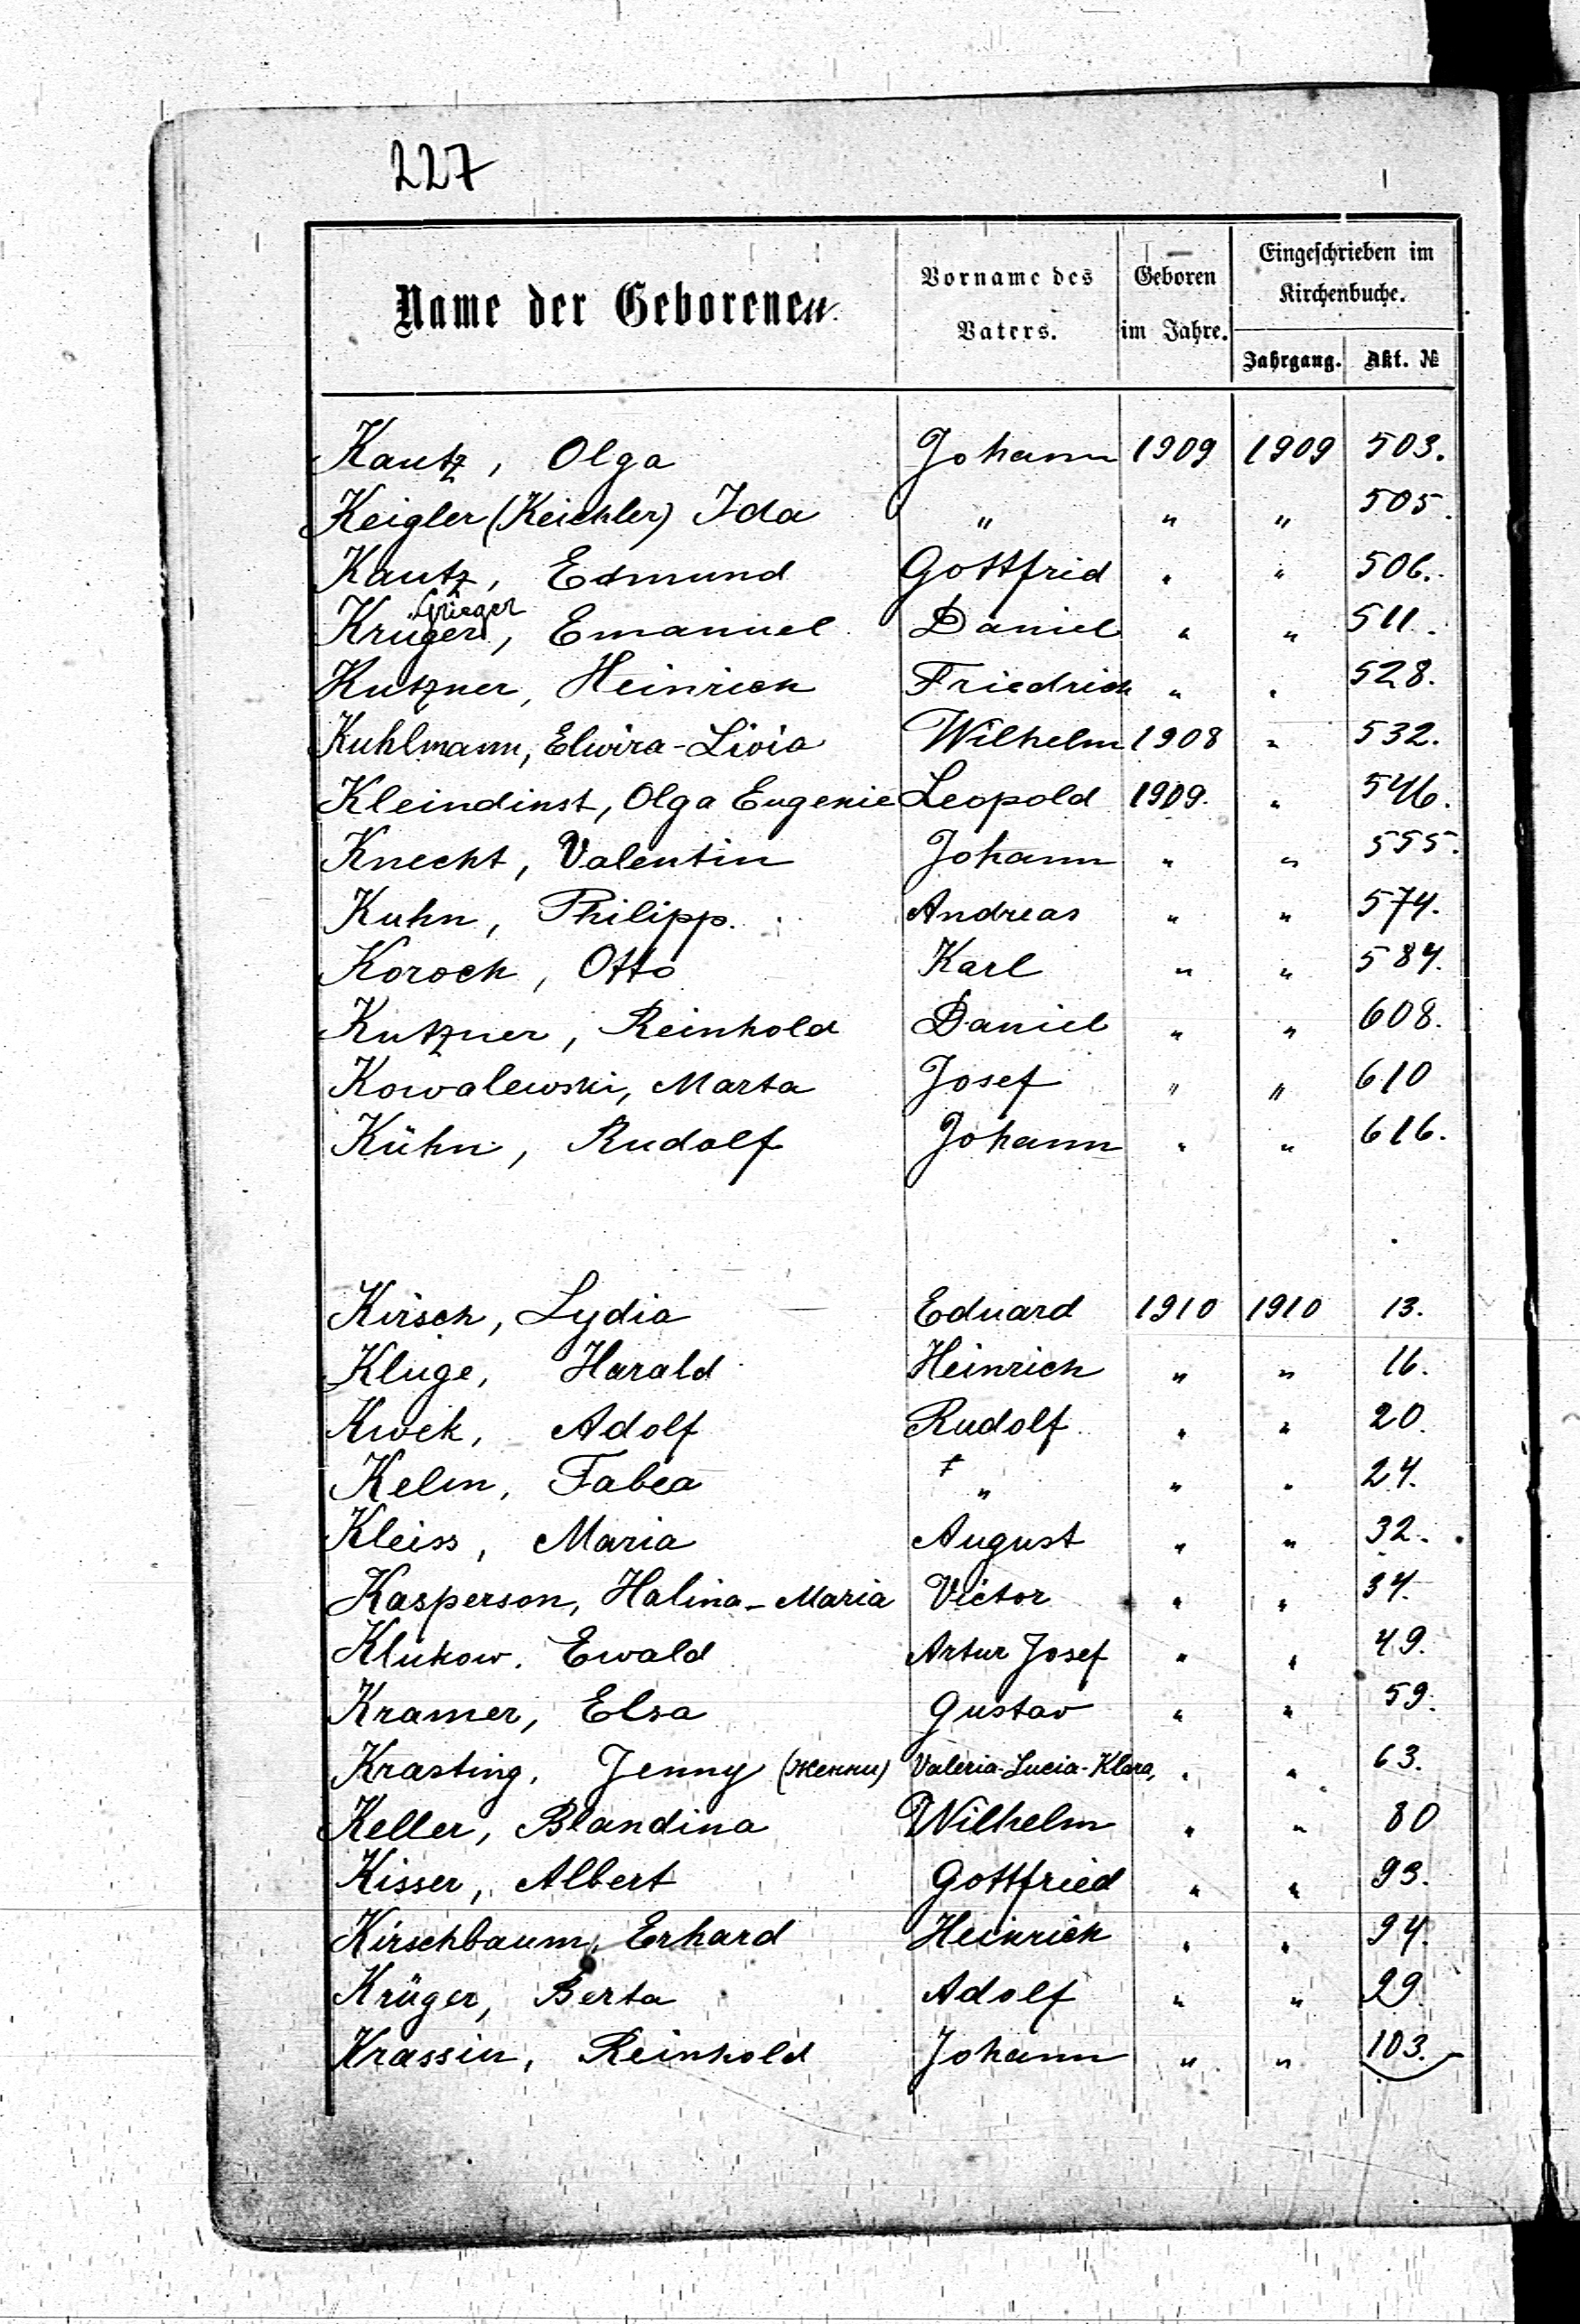 227
Name der Geborenen.
Vorname des Vaters.
Geboren im Jahre.
Eingeschrieben im Kirchenbuche.
Jahrgang. Akt. №
Kautz, Olga Johann 1909 1909 503.
Keigler (Keichler) Ida " " " 505.
Kautz, Edmund Gottfrid " " 506.
Grieger
Krüger, Emanuel Daniel " " 511.
Kutzner, Heinrich Friedrich " " 528.
Kuhlmann, Elwira-Livia Wilhelm 1908 " 532.
Kleindinst, Olga Eugenie Leopold 1909. " 546.
Knecht, Valentin Johann " " 555.
Kuhn, Philipp. Andreas " " 574.
Koroch, Otto Karl " " 584.
Kutzner, Reinhold Daniel " " 608.
Kowalewski, Marta Josef " " 610
Kühn, Rudolf Johann " " 616.
Kirsch, Lydia Eduard 1910 1910 13.
Kluge, Harald Heinrich " " 16.
Kwek, Adolf Rudolf " " 20.
Kelm, Fabea " " " 24.
Kleiss, Maria August " " 32.
Kasperson, Halina-Maria Victor " " 34.
Klukow, Ewald Artur Josef " " 49.
Kramer, Elsa Gustav " " 59.
Krasting, Jenny (Женни) Valeria-Lucia-Klara, " " 63.
Keller, Blandina Wilhelm " " 80
Kisser, Albert Gottfried " " 93.
Kirschbaum, Erhard Heinrich " " 94.
Krüger, Berta Adolf " " 99.
Krassin, Reinhold Johann " " 103.